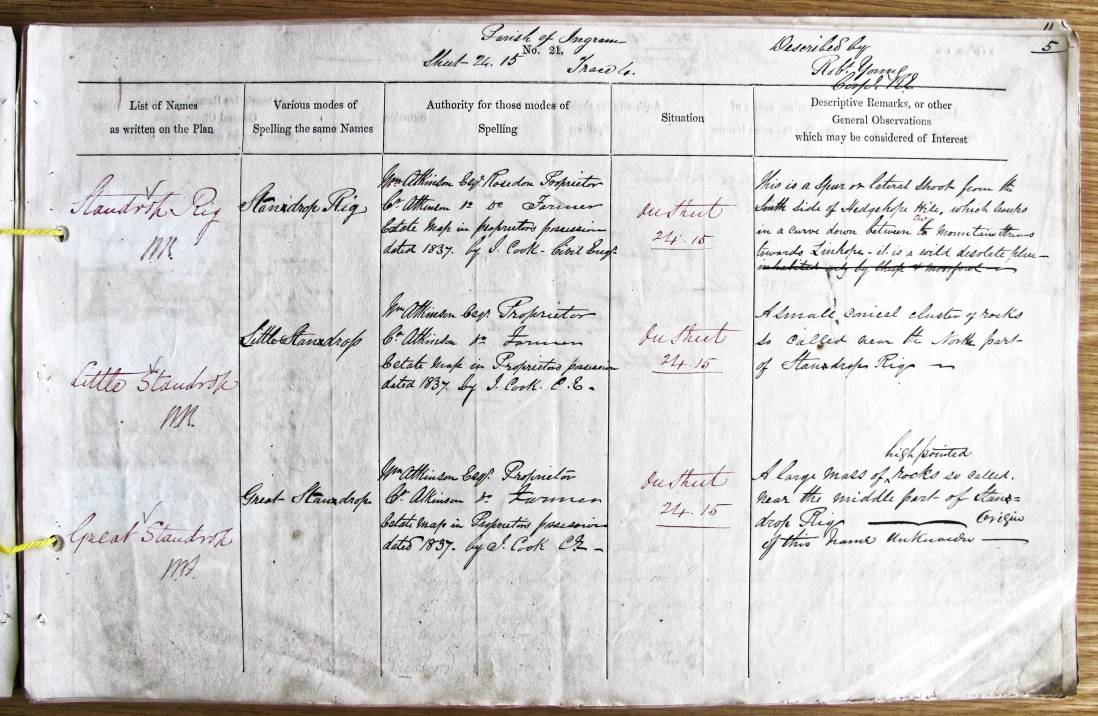 11
5
Parish of Ingram
No. 21.
Sheet 24.15 Trace 6.
Described by
Robt. Young
Corpl. RE.
List of Names
as written on the Plan
Various modes of
Spelling the same Names
Authority for those modes of
Spelling
Situation
Descriptive Remarks, or other
General Observations
which may be considered of Interest
Standrop Rig
Standrop Rig
Wm. Atkinson Esqr. Rosedon Proprietor
Atkinson Do Do Farmer
Estate Map in proprietors possession
dated 1837. by J. Cook - Civil Engr.
On Sheet
24.15
This is a Spur or lateral Shoot from the
South side of Hedgehope Hill, which
in a curve down between two Mountain Streams
towards Linhope - it is a wild desolate place
inhabited only by Sheep & moorfowl
Little Standrop
Little Standrop
Wm. Atkinson Esqr. Proprietor
Atkinson Do Farmer
Estate Map in Proprietors possession
dated 1837. by J. Cook. C.E.-
On Sheet
24.15
A small conical cluster of rocks
so called near the North part
of Standrop Rig
Great Standrop
Great Standrop
Wm. Atkinson Esqr. Proprietor
Atkinson Do Farmer
Estate Map in Proprietors possession
dated 1837. by J. Cook CE-
On Sheet
24.15
high pointed
A large mass of rocks so called.
near the middle part of Stan=
drop Rig Origin
of this name unknown